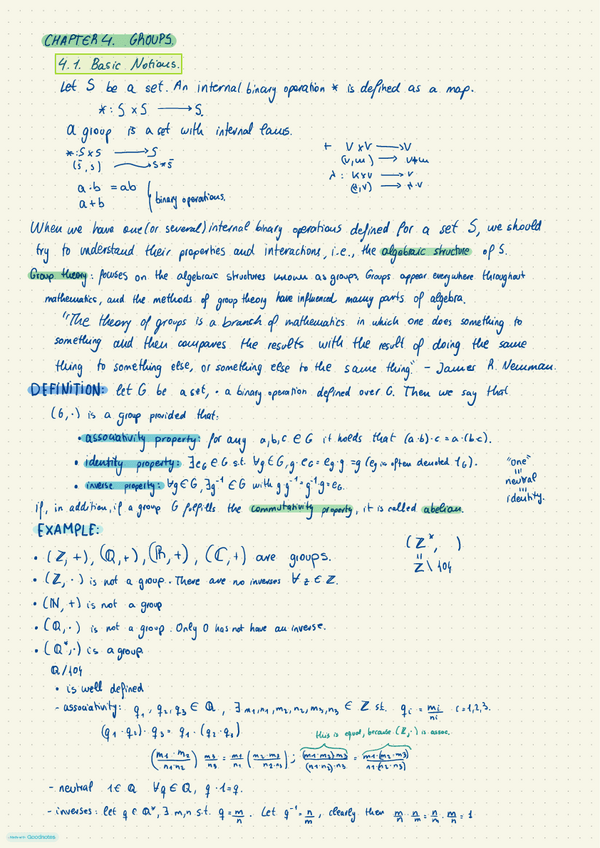 CHAPTER 4. GROUPS
4.1. Basic Notions.
Let S be a set. An internal binary operation * is defined as a map.
* : S x S → S.
A group is a set with internal laws.
* : S x S → S
(s, s) → s * s
+ V x V → V
(v, w) → v+w
λ : K x V → V
a · b = ab
a + b
binary operations.
When we have one (or several) internal binary operations defined for a set S, we should
try to understand their properties and interactions, i.e., the algebraic structure of S.
Group theory: focuses on the algebraic structures known as groups. Groups appear everywhere throughout
mathematics, and the methods of group theory have influenced many parts of algebra.
"The theory of groups is a branch of mathematics in which one does something to
something and then compares the results with the result of doing the same
thing to something else, or something else to the same thing" - James R. Newman.
DEFINITION: let G be a set, · a binary operation defined over G. Then we say that
(G, ·) is a group provided that:
• associativity property: for any a, b, c ∈ G it holds that (a·b)·c = a·(bc).
• identity property: ∃ e_G ∈ G s.t. ∀g ∈ G, g·e_G = e_G·g = g (e_G is often denoted 1_G).
• inverse property: ∀g ∈ G, ∃ g⁻¹ ∈ G with g g⁻¹ = g⁻¹ g = e_G.
"one"
=
neutral
=
identity.
if, in addition, if a group G fulfills the commutativity property, it is called abelian.
EXAMPLE:
• (ℤ, +), (ℚ, +), (ℝ, +), (ℂ, +) are groups.
(ℤ*, )
=
ℤ \ {0}
• (ℤ, ·) is not a group. There are no inverses ∀ z ∈ ℤ.
• (ℕ, +) is not a group
• (ℚ, ·) is not a group. Only 0 has not have an inverse.
• (ℚ*, ·) is a group
ℚ/{0}
• is well defined
- associativity: q₁, q₂, q₃ ∈ ℚ, ∃ m₁, n₁, m₂, n₂, m₃, n₃ ∈ ℤ st. qᵢ = mᵢ/nᵢ i=1,2,3.
(q₁·q₂)·q₃ = q₁·(q₂·q₃)
this is equal, because (ℤ, ·) is assoc.
(m₁·m₂/n₁·n₂) m₃/n₃ = m₁/n₁ (m₂·m₃/n₂·n₃) ; (m₁·m₂)m₃/(n₁·n₂)·n₃ = m₁·(m₂·m₃)/n₁·(n₂·n₃)
- neutral 1 ∈ ℚ ∀q ∈ ℚ, q·1 = q.
- inverses: let q ∈ ℚ*, ∃ m, n s.t. q = m/n. Let q⁻¹ = n/m, clearly then m/n · n/m = n/m · m/n = 1
Made with Goodnotes